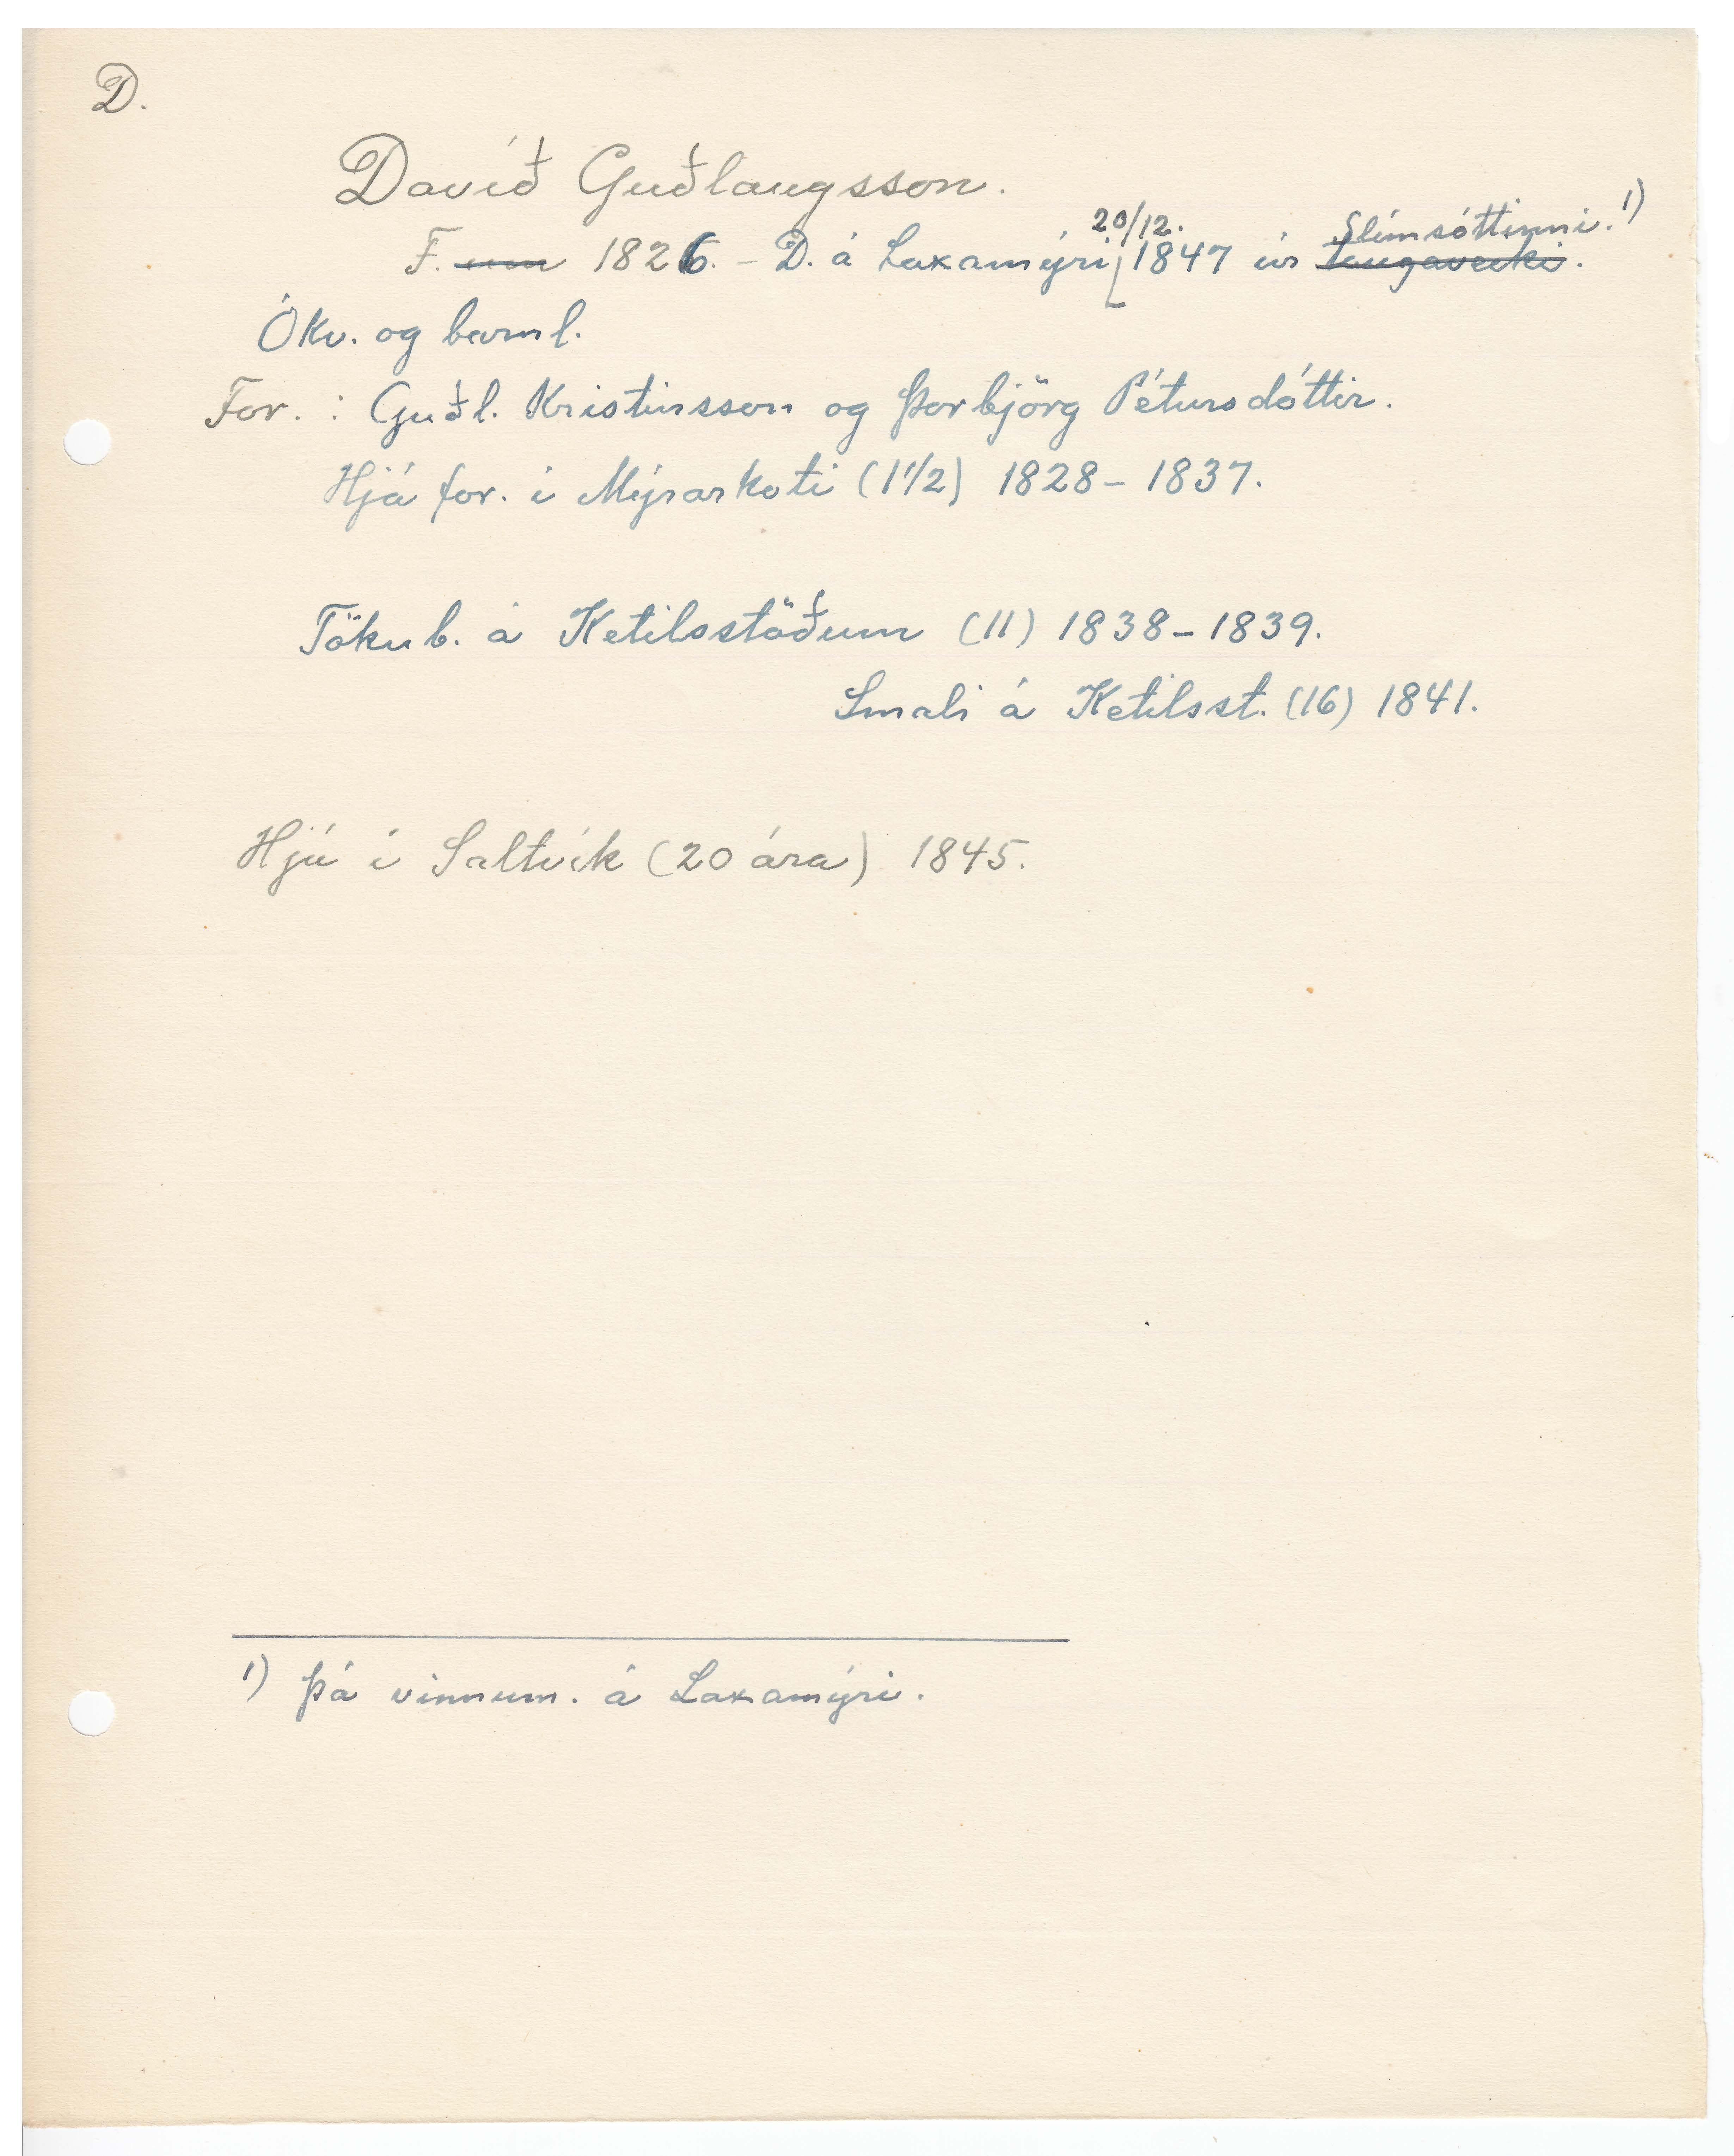 D.
Davíð Guðlaugsson.
F. um 1826. - D. á Laxamýri 20/12. 1847 úr taugaveiki. Slímsóttinni. 1)
Ókv. og barnl.
For. : Guðl. Kristinsson og Þorbjörg Pétursdóttir.
Hjá for. í Mýrarkoti (1 1/2) 1828 - 1837.
Tökub. á Ketilsstöðum (11) 1838 - 1839.
Smali á Ketilsst. (16) 1841.
Hjú í Saltvík (20 ára) 1845.
1) Þá vinnum. á Laxamýri.